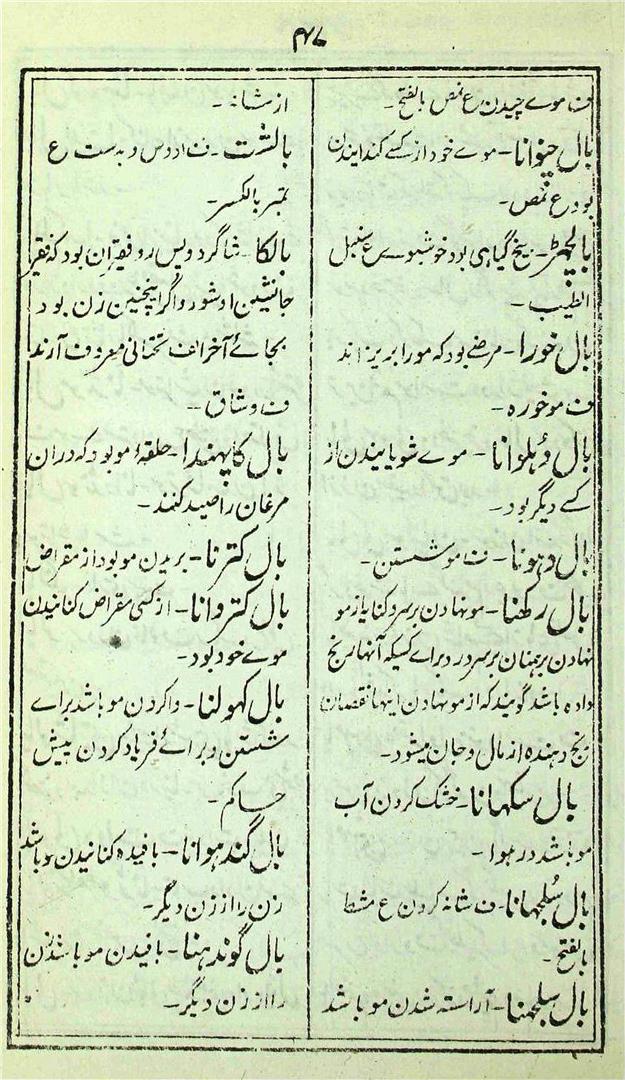 ف موے چیدن ع نمص بالفتح۔
بال چنوانا۔ موے خود از کسے کنانیدن
بود ع نمص۔
بالچھڑ۔ بیخ گیاہی بود خوشبو ع سنبل
الطیب۔
بال خورا۔ مرضے بود کہ مو را بریزاند
ف موخورہ۔
بال دُہلوانا۔ موے شویانیدن از
کسے دیگر بود۔
بال دہونا۔ ف مو شستن۔
بال رکہنا۔ مو نہادن بر سر و کنایہ از مو
نہادن برہمنان بر سر در براے کسیکہ آنہا رنج
دادہ باشد گویند کہ از مو نہادن اینہا نقصان
رنج دہندہ از مال و جان میشود۔
بال سکہانا۔ خشک کردن آب
مو باشد در ہوا۔
بال سُلجہانا۔ ف شانہ کردن ع مشط
بالفتح۔
بال سلجہنا۔ آراستہ شدن مو باشد
از شانہ۔
بالشت۔ ف ادوس و بدست ع
شبر بالکسر۔
بالکا۔ شاگرد ویس رو فقیران بود کہ فقیر
جانشین او شود و اگر ہمچنین زن بود
بجائے آخر الف تحتانی معروف آرند
ف وشاق۔
بال کا پہندا۔ حلقۂ مو بود کہ در ان
مرغان را صید کنند۔
بال کترنا۔ بریدن مو بود از مقراض
بال کتروانا۔ از کسی مقراض کنانیدن
موے خود بود۔
بال کہولنا۔ وا کردن مو باشد براے
شستن و برائے فریاد کردن پیش
حاکم۔
بال گندہوانا۔ بافیدہ کنانیدن مو باشد
زن را از زن دیگر۔
بال گوندہنا۔ بافیدن مو باشد زن
را از زن دیگر۔